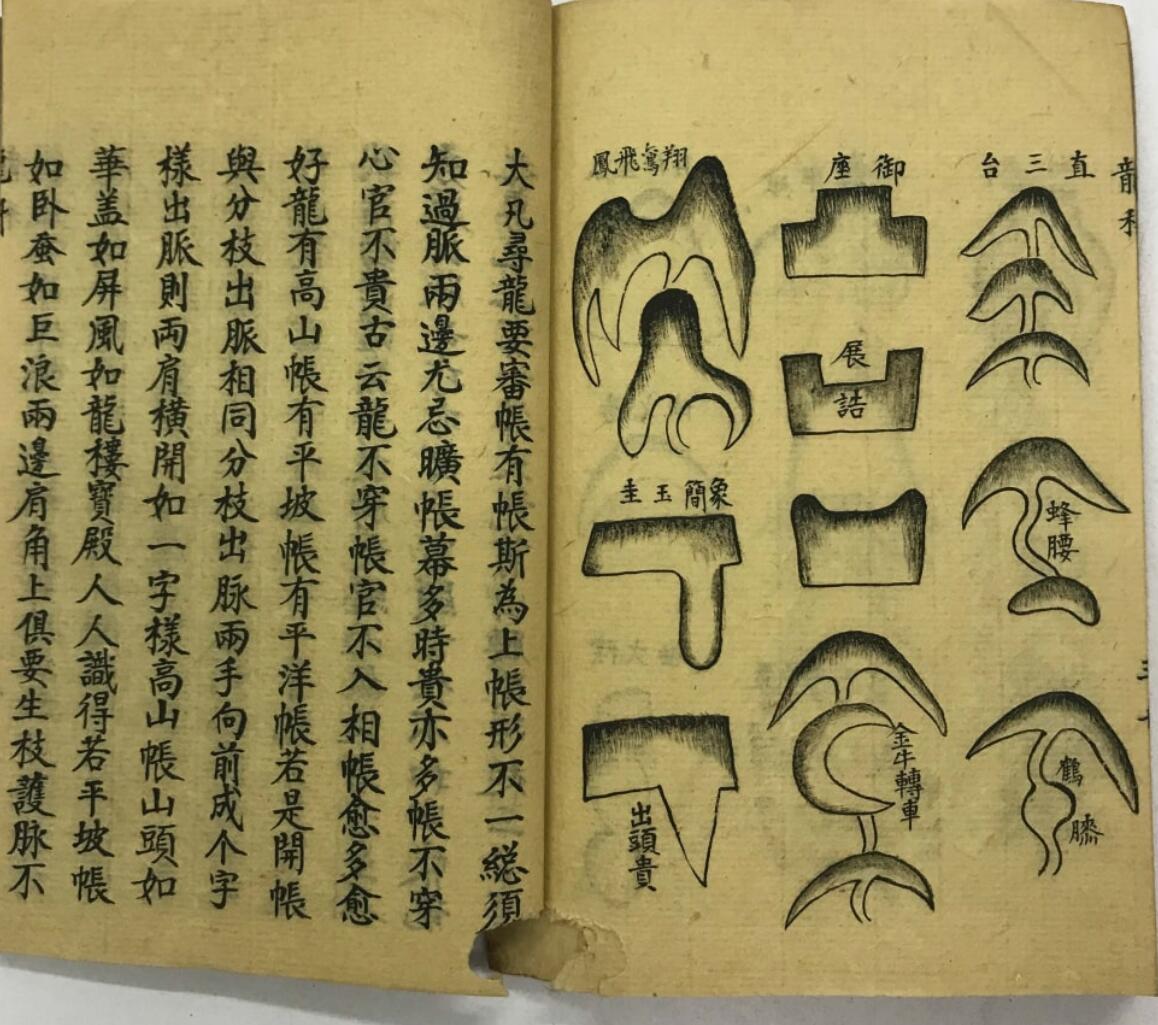 龍
直三台
蜂腰
鶴膝
御座
展誥
金牛轉車
翔鸞飛鳳
象簡玉圭
出頭貴
大凡尋龍要審帳有帳斯為上帳形不一総須
知過脈兩邊尤忌曠帳幕多時貴亦多帳不穿
心官不貴古云龍不穿帳官不入相帳愈多愈
好龍有高山帳有平坡帳有平洋帳若是開帳
與分枝出脈相同分枝出脉兩手向前成个字
樣出脈則両肩橫開如一字樣高山帳山頭如
華盖如屏風如龍樓寶殿人人識得若平坡帳
如卧蚕如巨浪兩邊肩角上俱要生枝護脉不